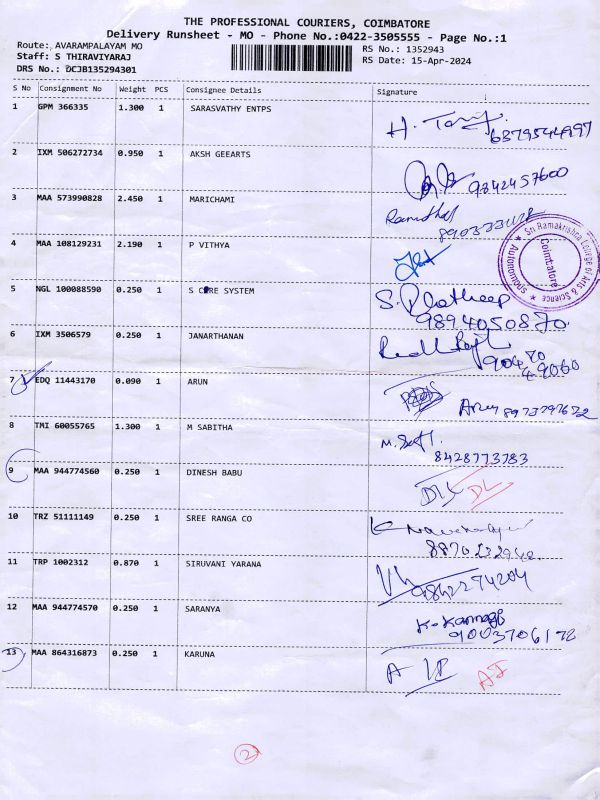 THE PROFESSIONAL COURIERS, COIMBATORE
Delivery Runsheet - MO - Phone No.:0422-3505555 - Page No.:1
Route: AVARAMPALAYAM MO
RS No.: 1352943
Staff: S THIRAVIYARAJ
RS Date: 15-Apr-2024
DRS No.: DCJB135294301
S No Consignment No Weight PCS Consignee Details Signature
1 GPM 366335 1.300 1 SARASVATHY ENTPS
6379544997
2 IXM 506272734 0.950 1 AKSH GEEARTS
9842457600
3 MAA 573990828 2.450 1 MARICHAMI
4 MAA 108129231 2.190 1 P VITHYA
Sri Ramakrishna College of Arts & Science
Autonomous
Coimbatore
5 NGL 100088590 0.250 1 S CORE SYSTEM
9894050870
6 IXM 3506579 0.250 1 JANARTHANAN
90470
49060
7 EDQ 11443170 0.090 1 ARUN
Arun 8973797672
8 TMI 60055765 1.300 1 M SABITHA
8428773783
9 MAA 944774560 0.250 1 DINESH BABU
DL
10 TRZ 51111149 0.250 1 SREE RANGA CO
11 TRP 1002312 0.870 1 SIRUVANI YARANA
9842274204
12 MAA 944774570 0.250 1 SARANYA
K. Kannagi
9003706178
13 MAA 864316873 0.250 1 KARUNA
2